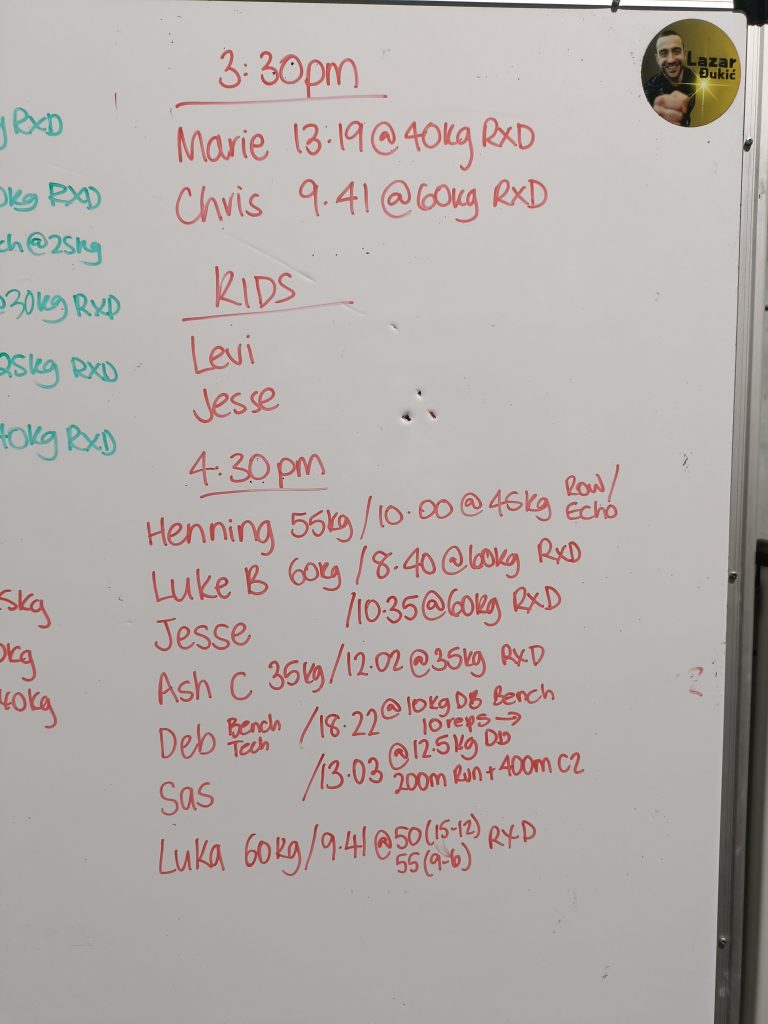 3:30pm
Marie 13.19 @ 40kg RXD
Chris 9.41 @ 60kg RXD
KIDS
Levi
Jesse
4.30pm
Henning 55kg / 10.00 @ 45kg Row/ Echo
Luke B 60kg / 8.40 @ 60kg RXD
Jesse / 10.35 @ 60kg RXD
Ash C 35kg / 12.02 @ 35kg RXD
Deb Bench Tech / 18.22 @ 10kg DB Bench
10 reps →
Sas / 13.03 @ 12.5kg Db
200m Run + 400m C2
Luka 60kg / 9.41 @ 50 (15-12) RXD
55 (9-6)
RXD
kg RXD
@25kg
30kg RXD
25kg RXD
40kg RXD
5kg
kg
40kg
Lazar
Đukić